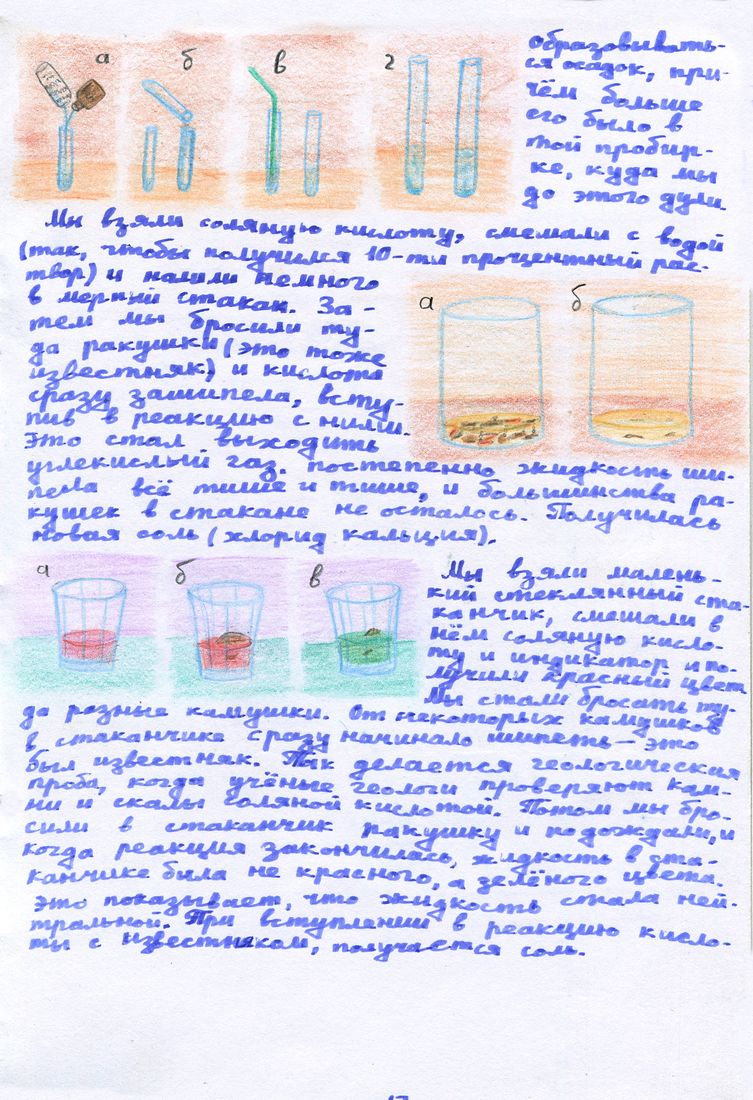 а
б
в
г
образовывать-
ся осадок, при-
чём больше
его было в
той пробир-
ке, куда мы
до этого дули.
Мы взяли соляную кислоту, смешали с водой
(так, чтобы получился 10-ти процентный рас-
твор) и налили немного
в мерный стакан. За-
тем мы бросили ту-
да ракушки (это тоже
известняк) и кислота
сразу зашипела, всту-
пив в реакцию с ними.
Это стал выходить
углекислый газ. постепенно жидкость ши-
пела всё тише и тише, и большинства ра-
кушек в стакане не осталось. Получилась
новая соль (хлорид кальция).
а
б
а
б
в
Мы взяли малень-
кий стеклянный ста-
канчик, смешали в
нём соляную кисло-
ту и индикатор и по-
лучили красный цвет.
Мы стали бросать ту-
да разные камушки. От некоторых камушков
в стаканчике сразу начинало шипеть – это
был известняк. Так делается геологическая
проба, когда учёные геологи проверяют кам-
ни и скалы соляной кислотой. Потом мы бро-
сили в стаканчик ракушку и подождали, и
когда реакция закончилась, жидкость в ста-
канчике была не красного, а зелёного цвета.
Это показывает, что жидкость стала ней-
тральной. При вступлении в реакцию кисло-
ты с известняком, получается соль.